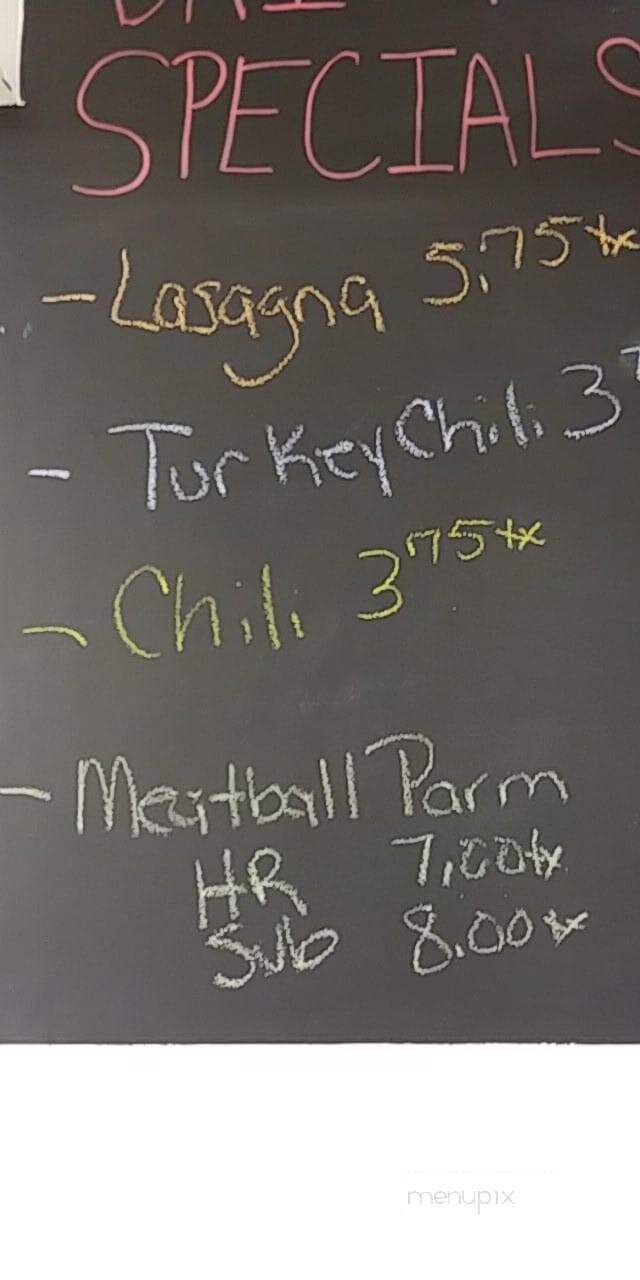 SPECIALS
- Lasagna 5.75 tx
- Turkey Chili 3
- Chili 3 75 tx
- Meatball Parm
HR 7.00 tx
Sub 8.00 tx
menupix